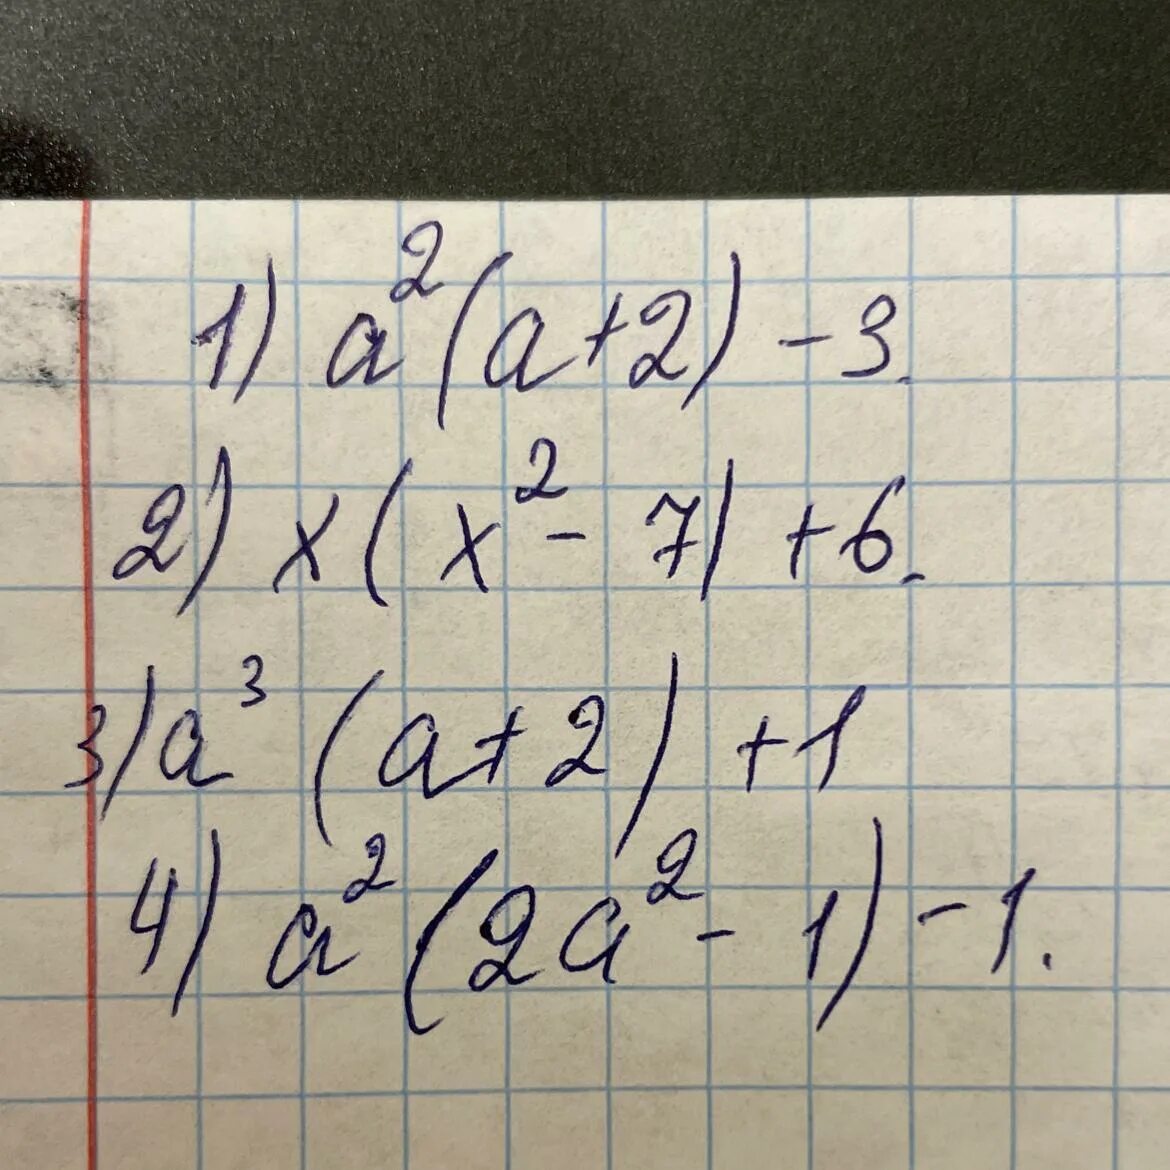 1) a²(a+2) - 3.
2) x(x² - 7) + 6.
3) a³ (a+2) + 1
4) a² (2a² - 1) - 1.